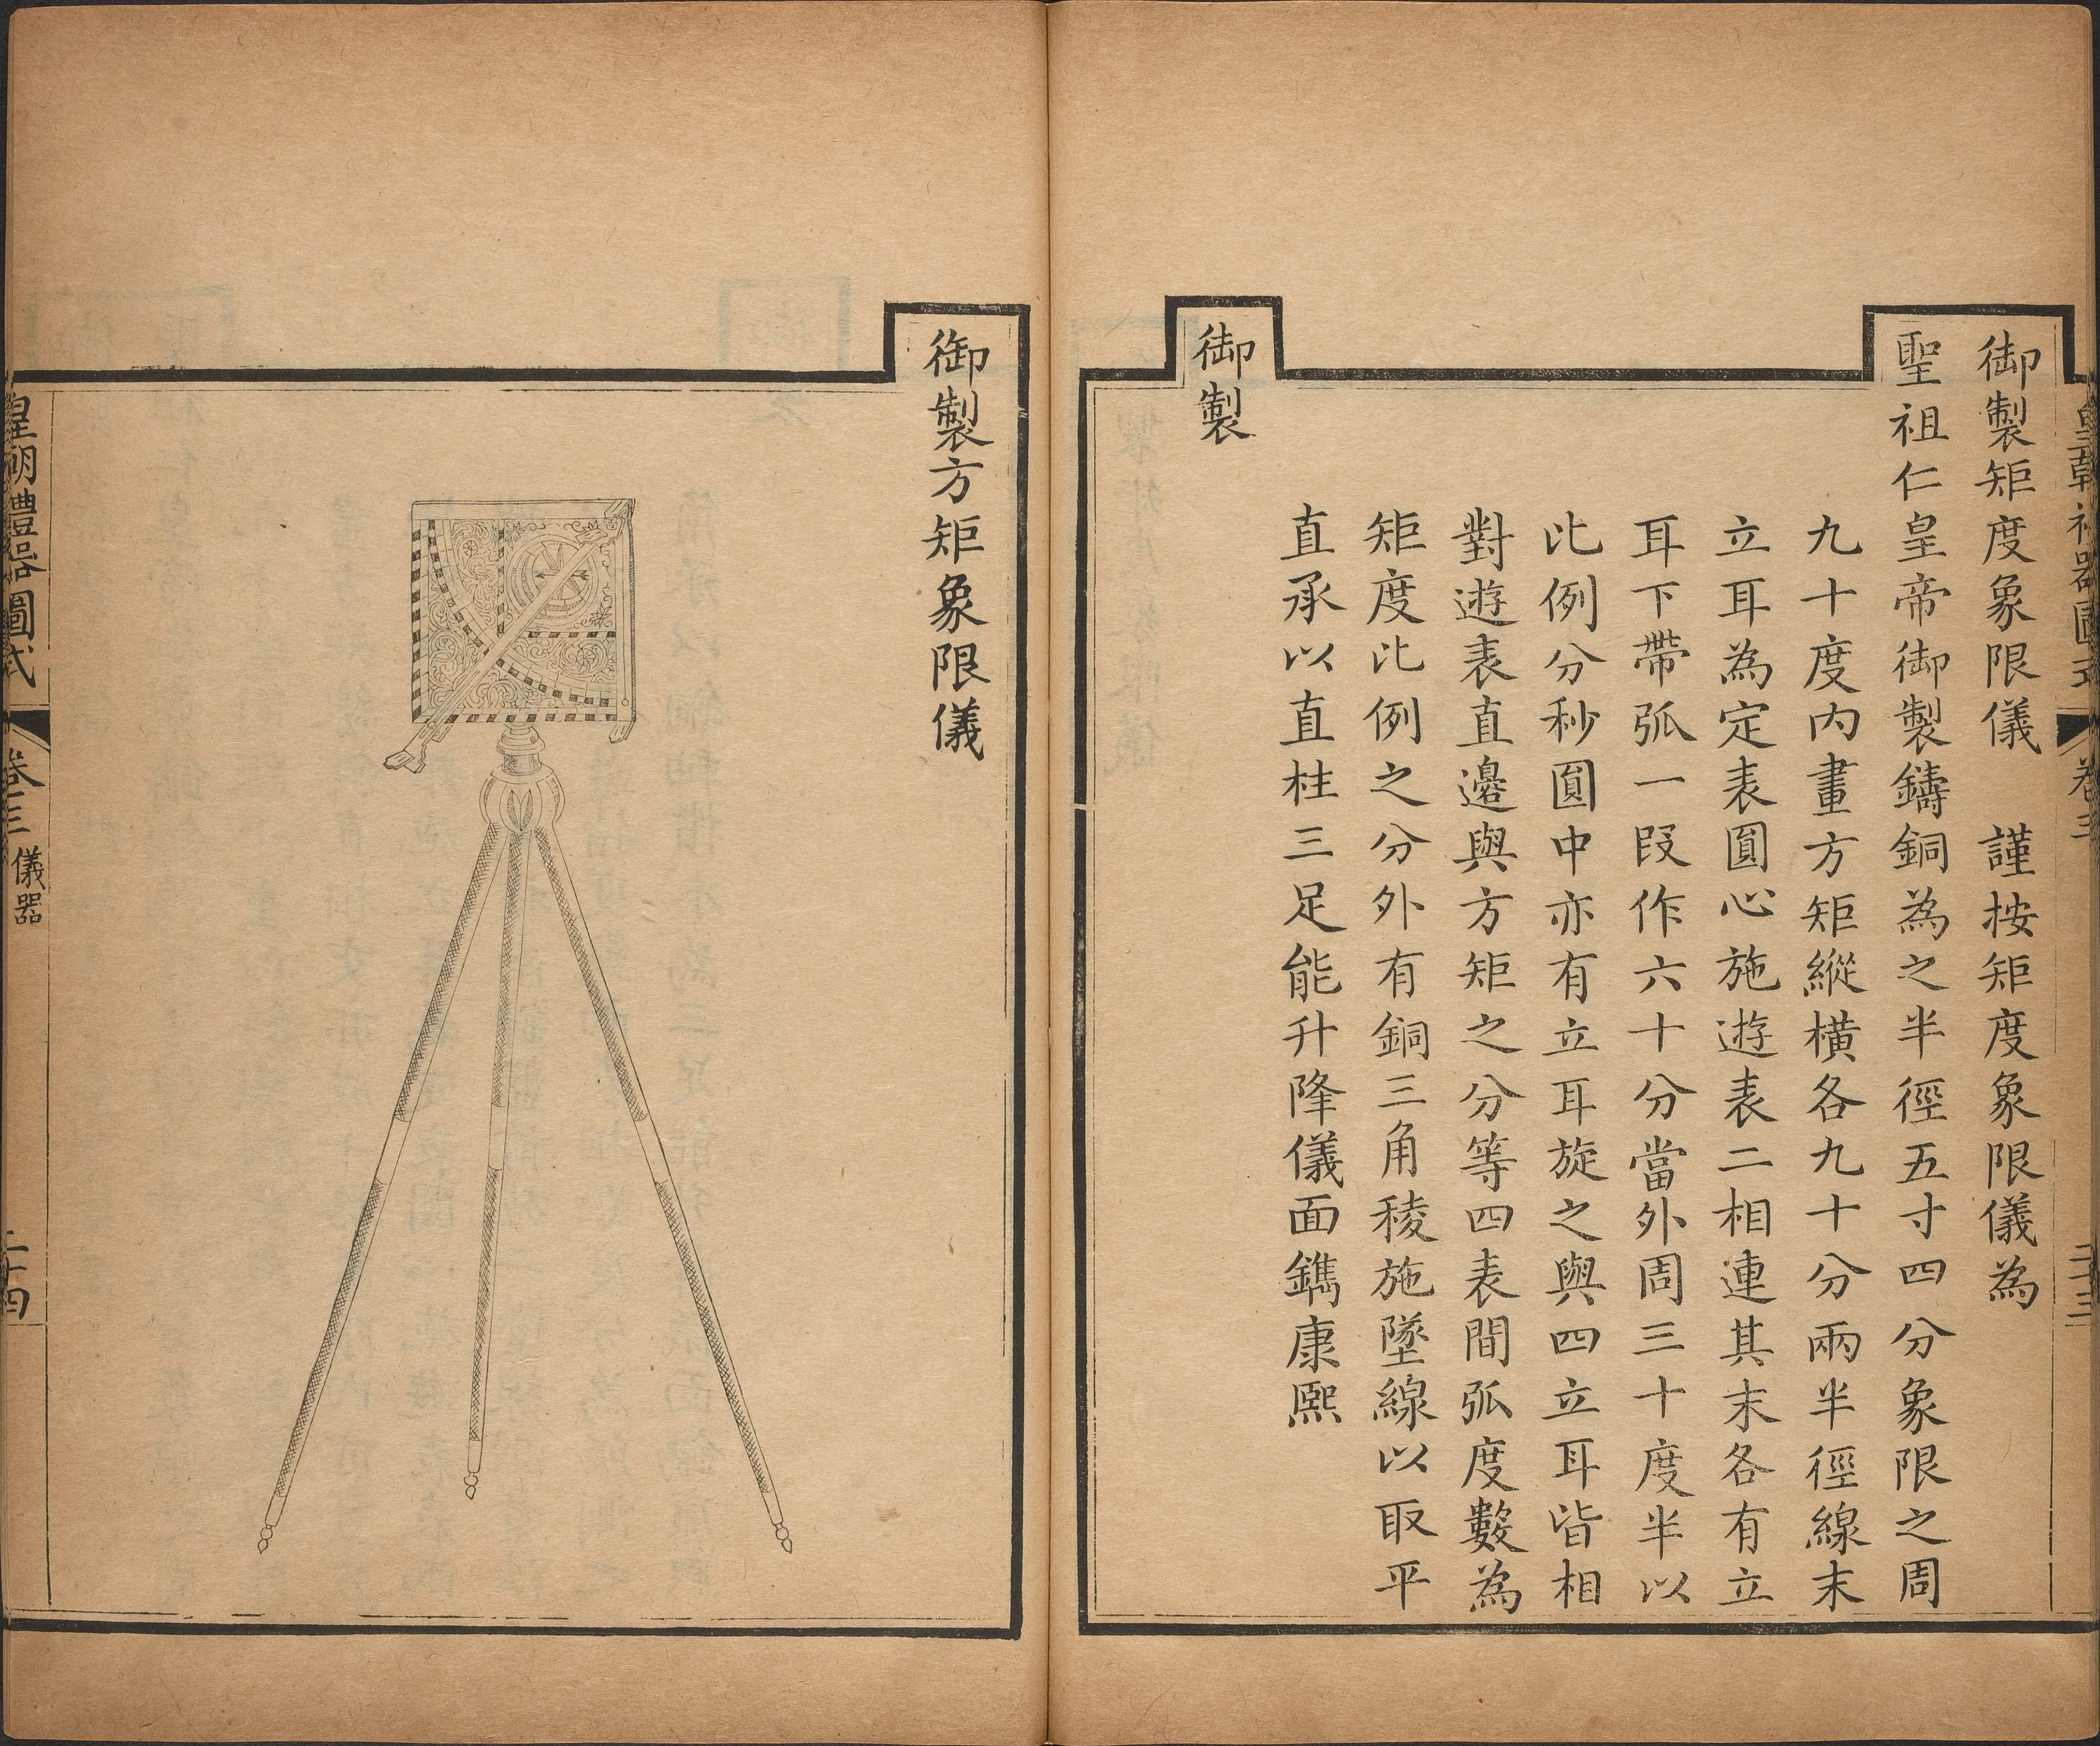 御製矩度象限儀　謹按矩度象限儀為
聖祖仁皇帝御製鑄銅為之半徑五寸四分象限之周
九十度內畫方矩縱橫各九十分兩半徑線末
立耳為定表圓心施遊表二相連其末各有立
耳下帶弧一段作六十分當外周三十度半以
比例分秒圓中亦有立耳旋之與四立耳皆相
對遊表直邊與方矩之分等四表間弧度數為
矩度比例之分外有銅三角稜施墜線以取平
直承以直柱三足能升降儀面鐫康熙
御製
御製方矩象限儀
皇朝禮器圖式
卷三 儀器
二十四